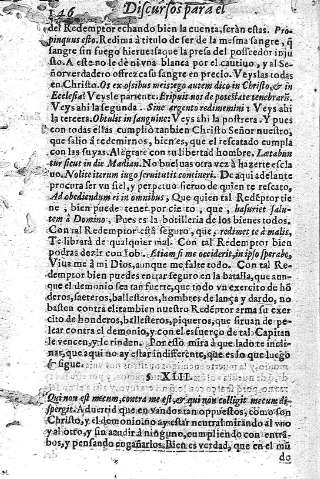 546 Discursos para el
del Redemptor echando bien la cuenta, serán estas. Pro-
pinquus esto. Redima à titulo de ser de la mesma sangre, q̃
sangre sin fuego hierue: saque la presa del posseedor inju
sto. A este no le dè ni vna blanca por el cautiuo, y al Se-
ñor verdadero ofrezca su sangre en precio. Veys las todas
en Christo. Os ex ossibus meis ego autem dico in Christo, & in
Ecclesia? Veys le pariente. Eripuit nos de potestate tenebrarũ.
Veys ahi la segunda. Sine argento redimemini: Veys ahi
la tercera. Obtulit in sanguine: Veys ahi la postrera. Y pues
con todas ellas cumpliò tambien Christo Señor nuestro,
que salio à redemirnos, bien es, que el rescatado cumpla
con las suyas. Alegrate con tu libertad hombre. Lætabun
tur sicut in die Madian. No bueluas otra vez à hazerte escla
uo. Nolite iterum iugo seruitutis contineri. De aqui adelante
procura ser vn fiel, y perpetuo sieruo de quien te rescato,
Ad obediendum ei in omnibus, Que quien tal Redẽptor tie
ne, bien puede tener por cierto, que, hauriet salu-
tem à Domino. Pues es la botilleria de los bienes todos.
Con tal Redemptor està seguro, que, redimet te à malis,
Te librarà de qualquier mal. Con tal Redemptor bien
podras dezir con Iob. Etiam si me occiderit, in ipso sperabo,
Viua me à mi Dios, aunque me falte todo. Con tal Re-
demptor bien puedes entrar seguro en la batalla, que aun-
que el demonio sea tan fuerte, que todo vn exercito de hõ
deros, saeteros, ballesteros, hombres de lança y dardo, no
basten contra el: tambien nuestro Redẽptor arma su exer
cito de honderos, ballesteros, piqueros, que siruan de pe-
lear contra el demonio, y con el esfuerço de tal Capitan
le vencen, y le rinden. Por esso mira à que lado te incli-
nas, que aqui no ay estar indifferente, que es lo que luego
se sigue.
§. XIII.
Qui non est mecum, contra me est, & qui non colligit mecum di-
spergit. Aduertid que en vandos tan oppuestos, como son
Christo, y el demonio, no ay estar neutral mirando al vno
y al otro, y sin acudir à ninguno, cumpliendo con entrã-
bos, y pensando engañarlos. Bien es verdad, que en el mũ
do